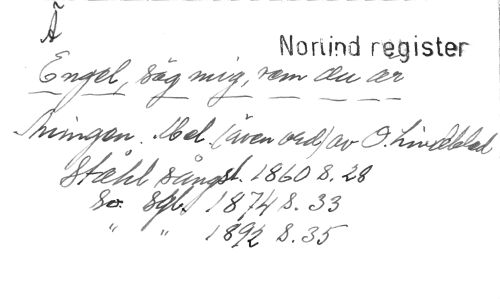 Ä
Norlind register
Engel, säg mig, vem du är
Aningen. Mel. (även ord) av O. Lindblad
Ståhl sångst. 1860 S. 28
So. Sgb. 1874 S. 33
" " 1892 S. 35